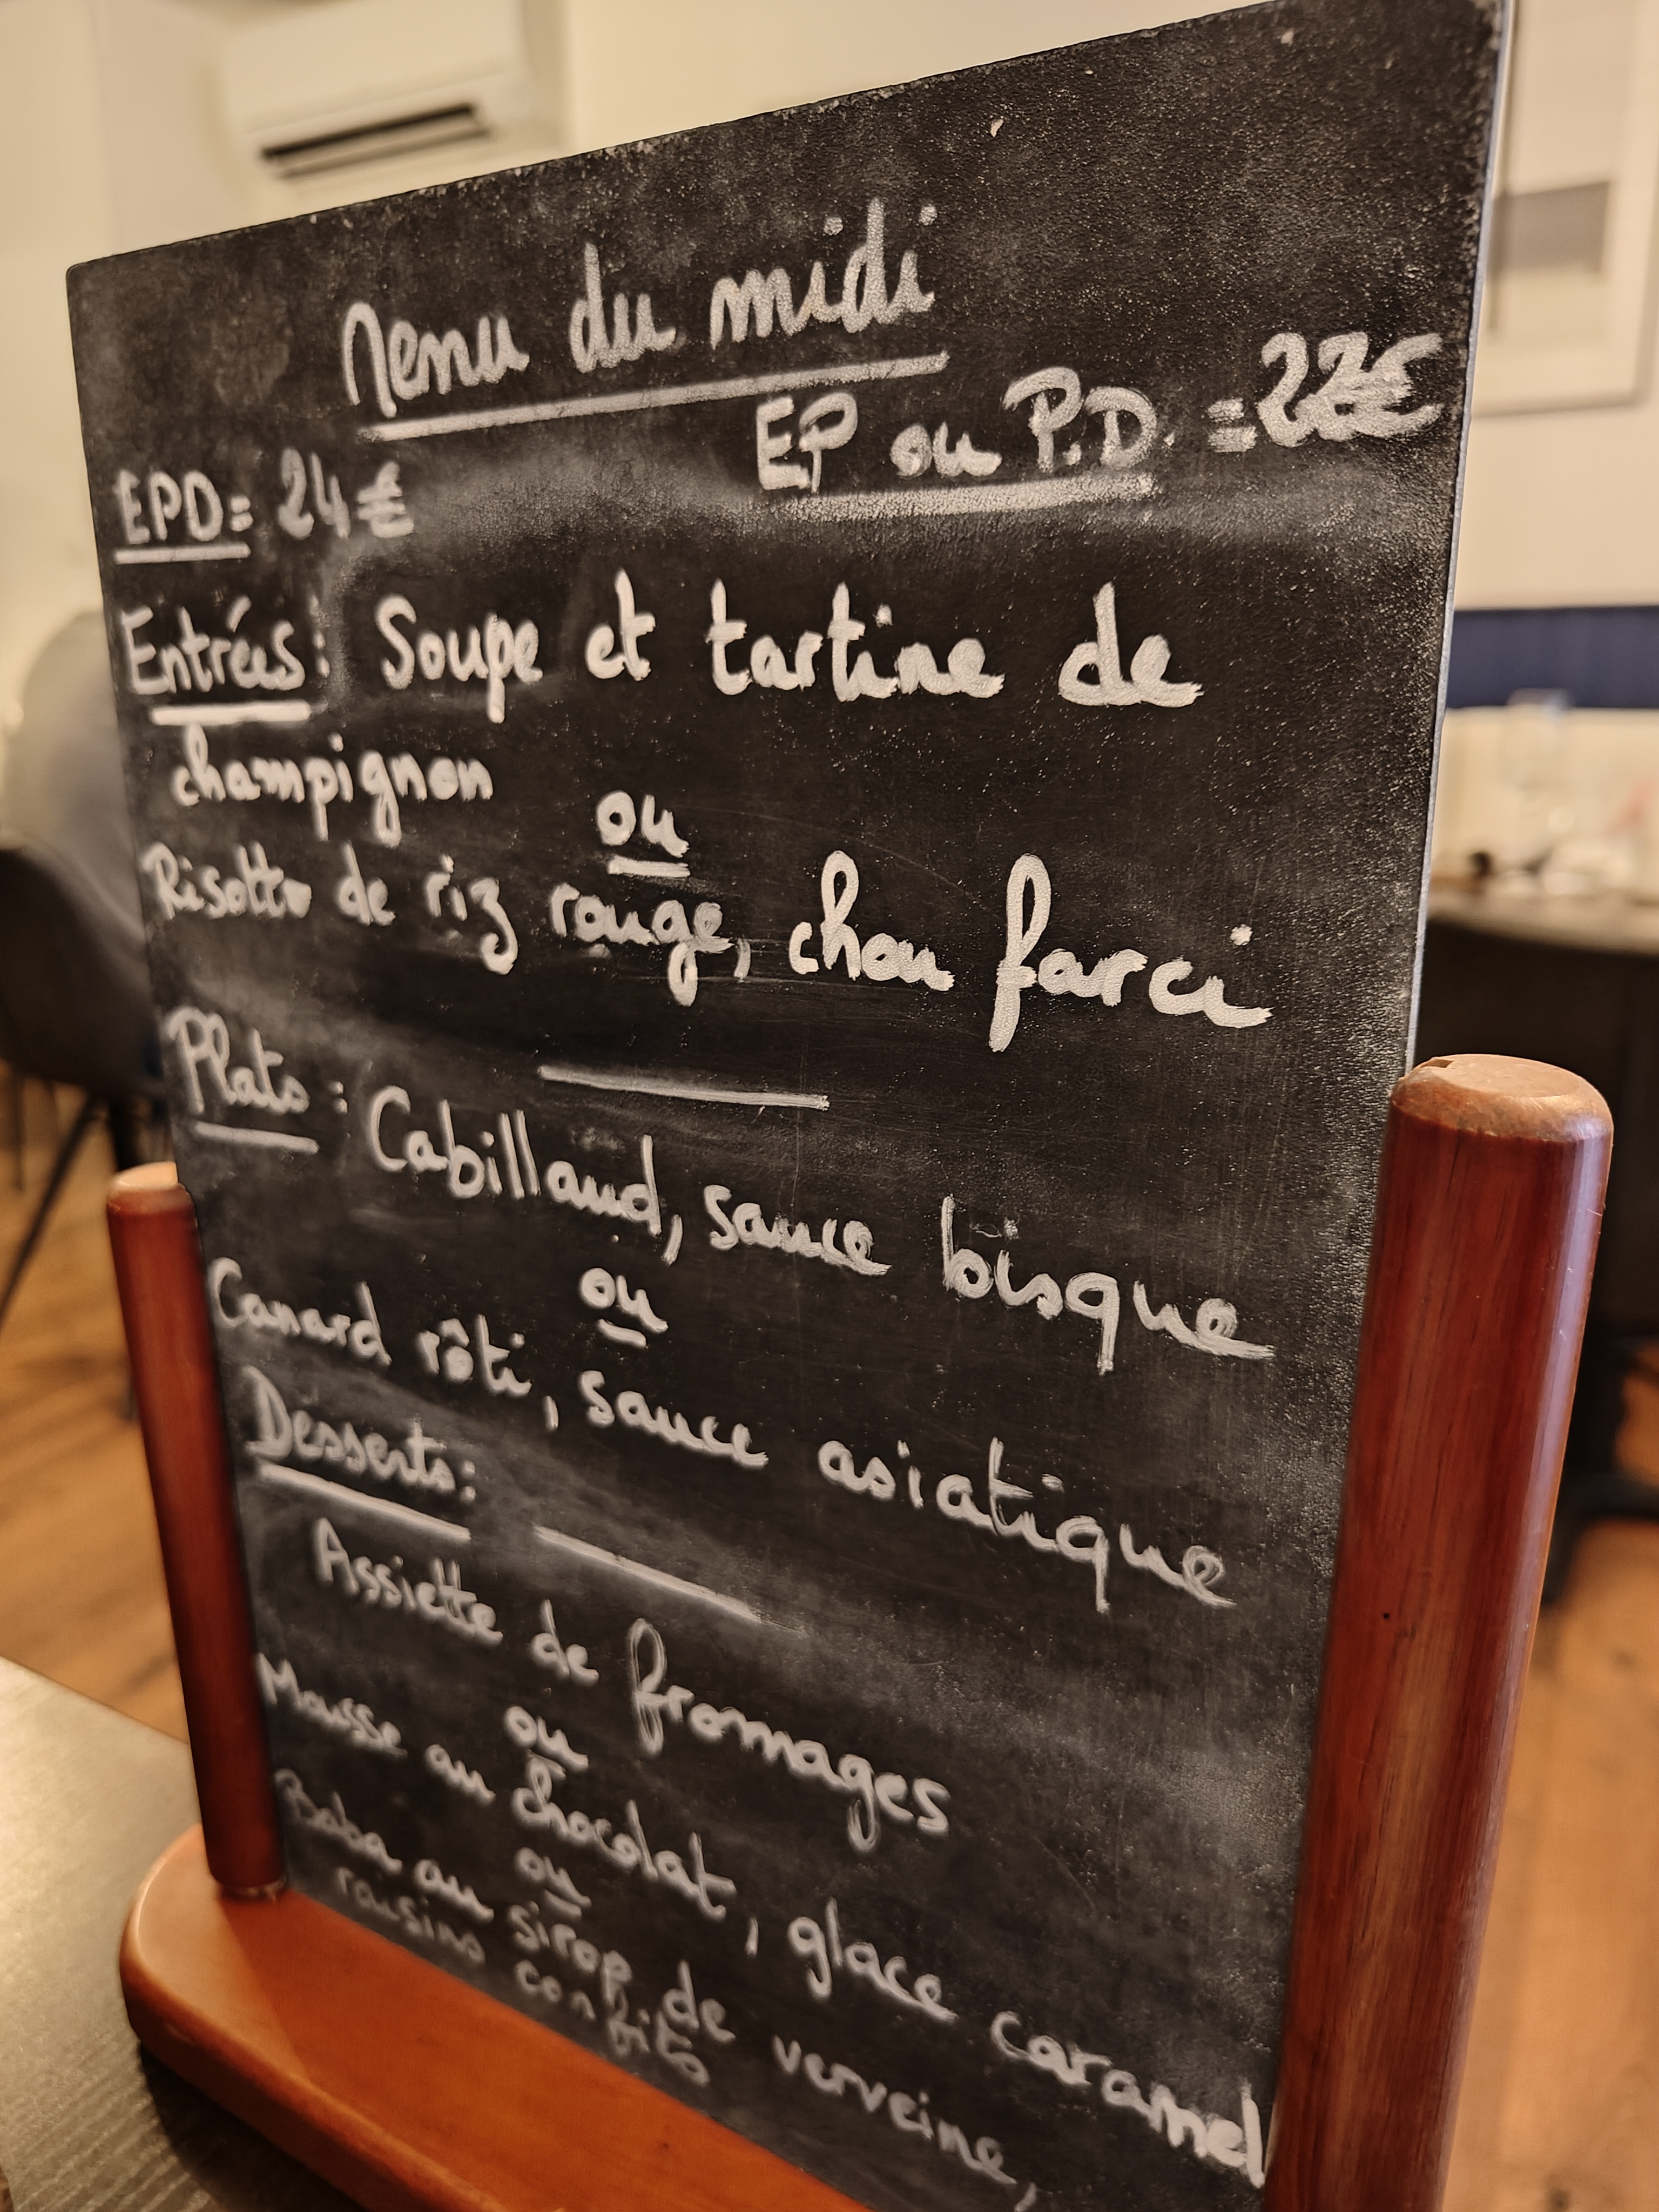 Menu du midi
EP ou P.D. = 22€
EPD = 24€
Entrées : Soupe et tartine de
champignon
ou
Risotto de riz rouge, chou farci
Plats : Cabillaud, sauce bisque
ou
Canard rôti, sauce asiatique
Desserts :
Assiette de fromages
ou
Mousse au chocolat, glace caramel
ou
Baba au sirop de verveine,
raisins confits